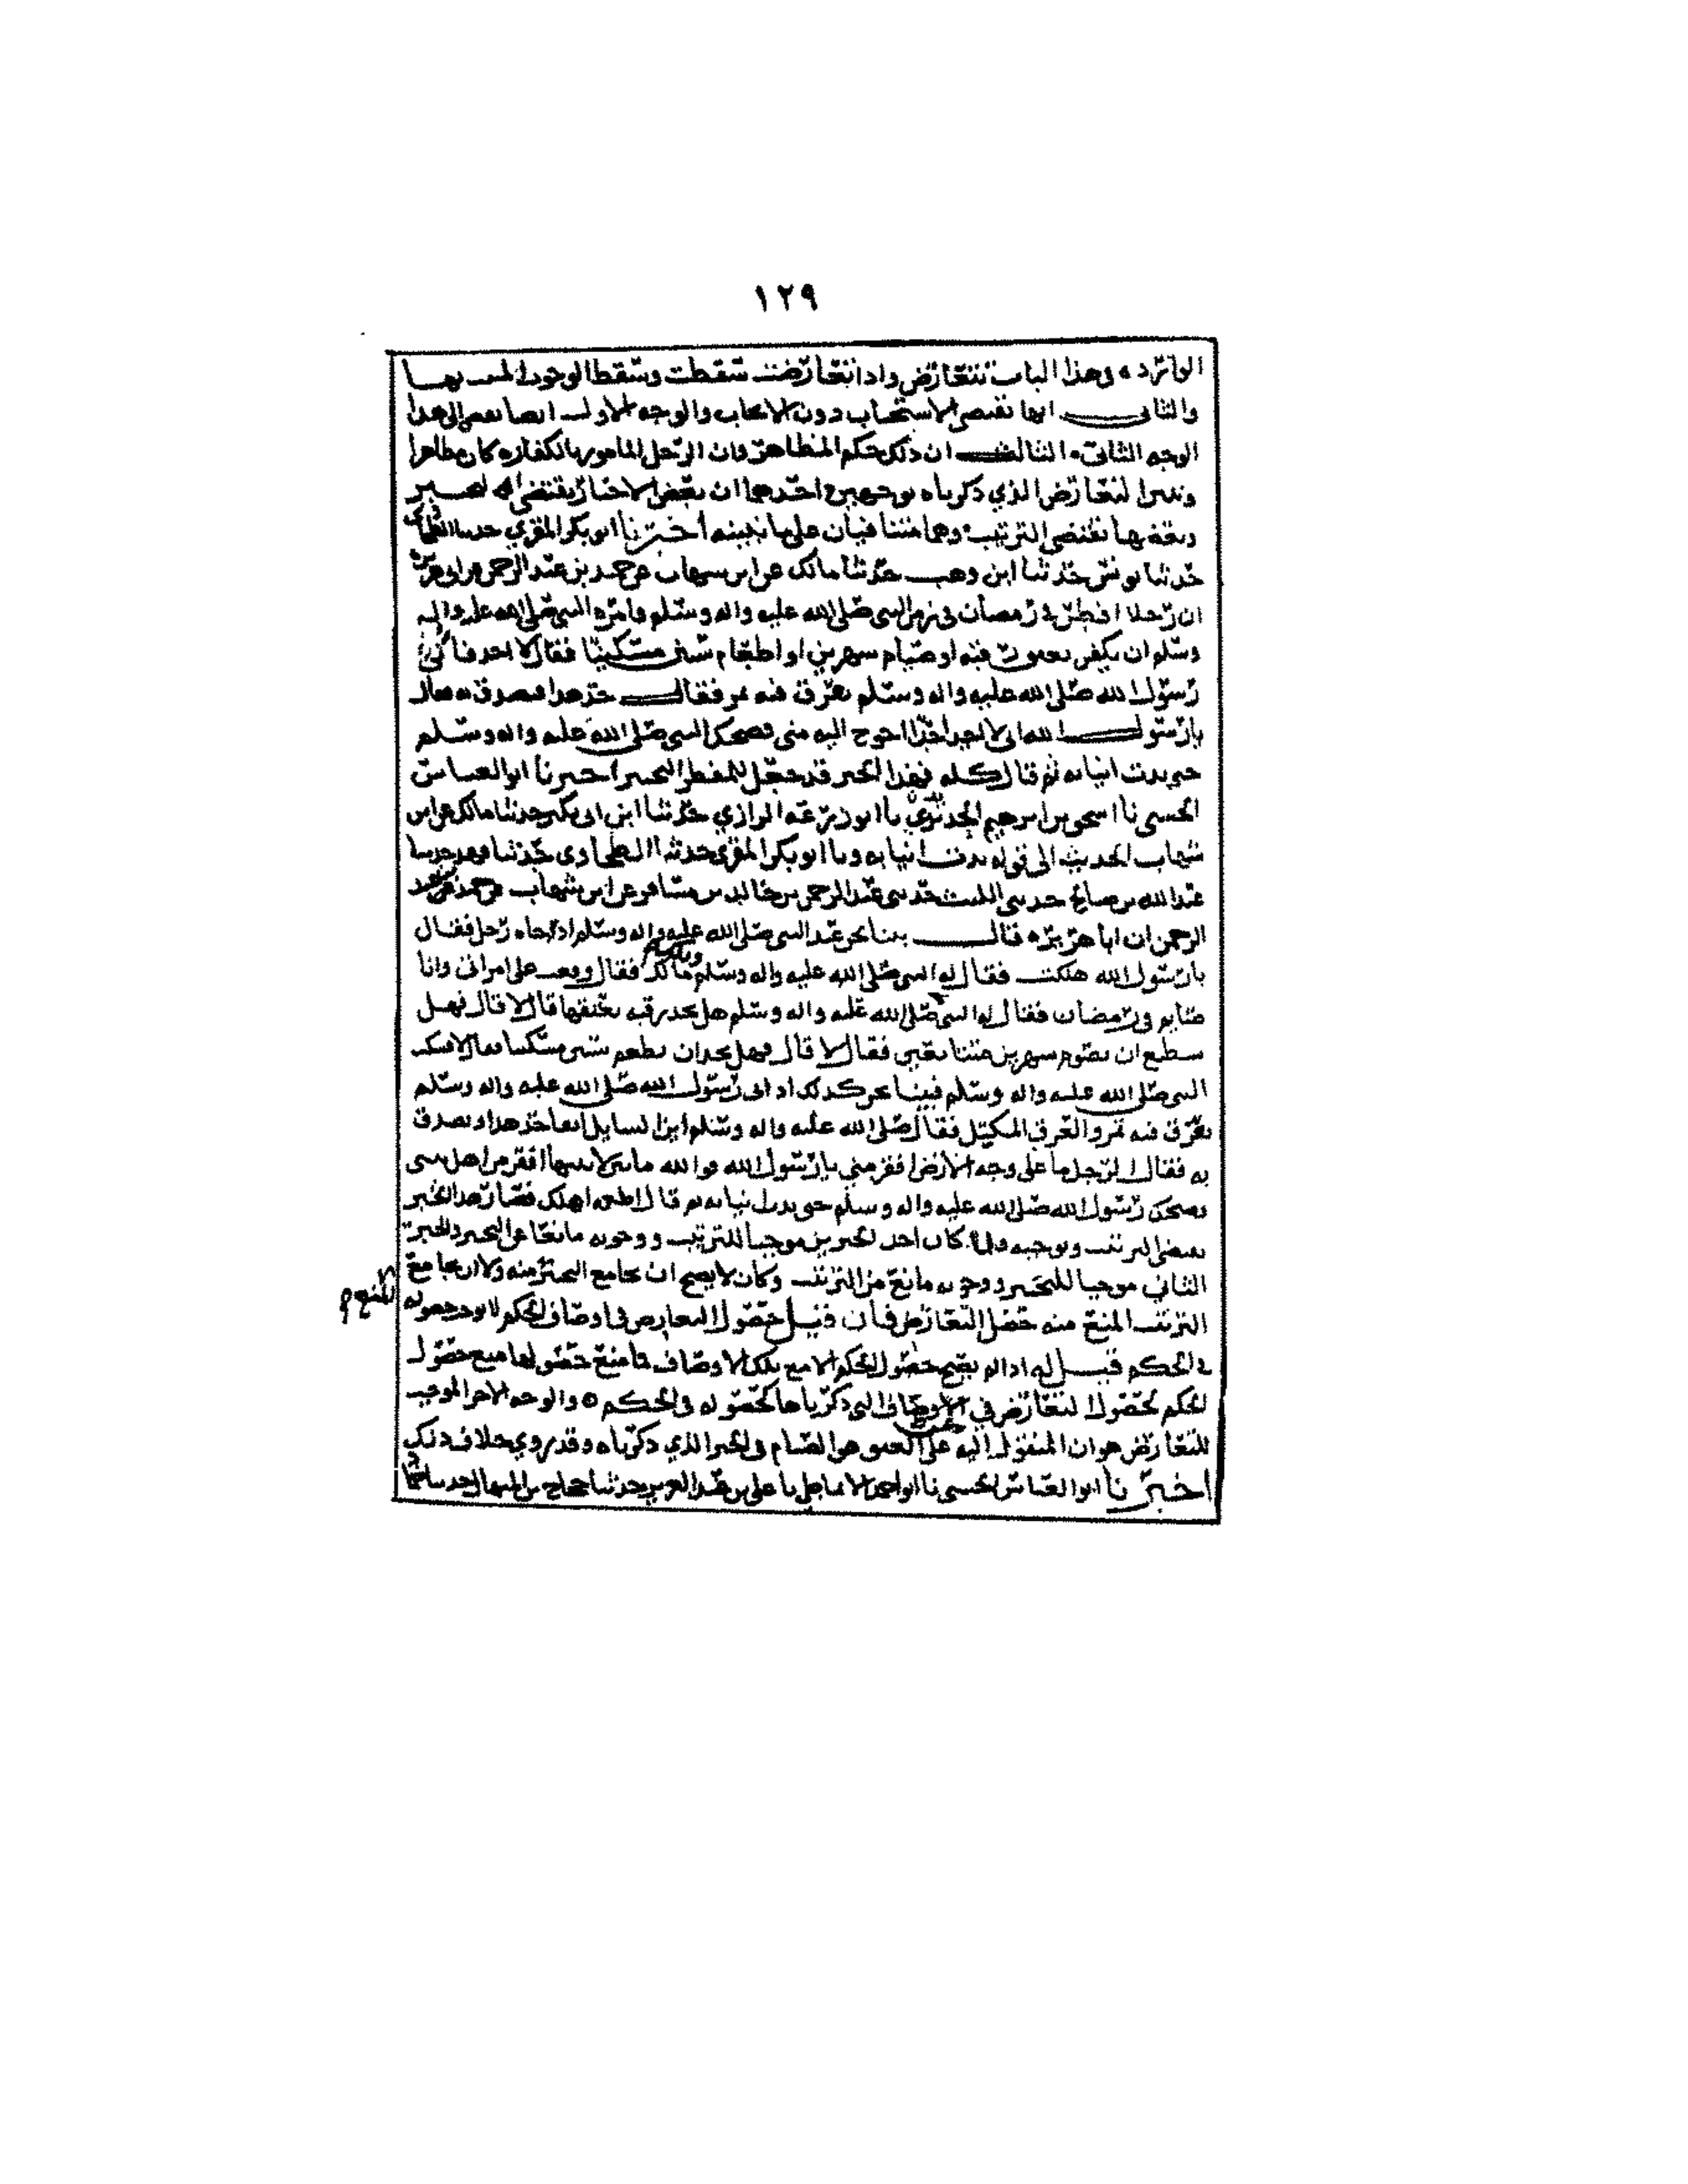 ١٢٩
الواردة في هذا الباب تتعارض واذا تعارضت سقطت وسقط الوجوب المتعلق بها
والثاني انها تقتضي الاستحباب دون الايجاب والوجه الاول ايضا يفضي الى هذا
الوجه الثاني والثالث ان ذلك حكم المظاهر وان الرجل المامور بالكفارة كان مظاهرا
التعارض الذي ذكرناه بوجهين احدهما ان بعض الاخبار يقتضي التخيير
وبعضها يقتضي الترتيب وهما متنافيان على ما نبينه اخبرنا ابو بكر المقري حدثنا الطحاوي
حدثنا يونس حدثنا ابن وهب حدثنا مالك عن ابن شهاب عن حميد بن عبد الرحمن عن ابي هريرة
ان رجلا افطر في رمضان في زمن النبي صلى الله عليه واله وسلم فامره النبي صلى الله عليه واله
وسلم ان يكفر بعتق رقبة او صيام شهرين او اطعام ستين مسكينا فقال لا اجد فاتي
رسول الله صلى الله عليه واله وسلم بعرق فيه تمر فقال خذ هذا فتصدق به فقال
يا رسول الله اني لا اجد احدا احوج اليه مني فضحك النبي صلى الله عليه واله وسلم
حتى بدت انيابه ثم قال كله فهذا الخبر قد جعل للمفطر التخيير اخبرنا ابو العباس
الحسني نا اسحق بن ابرهيم نا ابو زرعة الرازي حدثنا ابن ابي بكير حدثنا مالك عن ابن
شهاب الحديث الى قوله بدت انيابه ونا ابو بكر المقري حدثنا الطحاوي حدثنا فهد حدثنا
عبد الله بن صالح حدثني الليث حدثني عبد الرحمن بن خالد بن مسافر عن ابن شهاب عن حميد بن عبد
الرحمن ان ابا هريرة قال بينا نحن عند النبي صلى الله عليه واله وسلم اذ جاه رجل فقال
يا رسول الله هلكت فقال له النبي صلى الله عليه واله وسلم مالك فقال وقعت على امراتي وانا
صايم في رمضان فقال له النبي صلى الله عليه واله وسلم هل تجد رقبة تعتقها قال لا قال فهل
تستطيع ان تصوم شهرين متتابعين فقال لا قال فهل تجد ان تطعم ستين مسكينا قال لا فسكت
النبي صلى الله عليه واله وسلم فبينا نحن كذلك اذ اتي رسول الله صلى الله عليه واله وسلم
بعرق فيه تمر والعرق المكتل فقال صلى الله عليه واله وسلم اين السايل انفا خذ هذا وتصدق
به فقال الرجل ما على وجه الارض افقر مني يا رسول الله فوالله ما بين لابتيها افقر من اهل بيتي
فضحك رسول الله صلى الله عليه واله وسلم حتى بدت انيابه ثم قال اطعمه اهلك فصار هذا الخبر
يقتضي الترتيب ويوجبه ولما كان احد الخبرين موجبا للترتيب ووجوبه مانعا من التخيير والخبر
الثاني موجبا للتخيير ووجوبه مانع من الترتيب وكان لا يصح ان يجامع التخيير منه ولا ان يجامع
الترتيب المنع منه حصل التعارض فان قيل حصول التعارض في اوصاف الحكم لا يوجب حصوله
المنع
في الحكم قيل له اذا لم يصح حصول الحكم الا مع تلك الاوصاف فما منع حصولها منع حصول
الحكم فحصول التعارض في الاوصاف التي ذكرناها كحصوله في الحكم والوجه الاخر الموجب
للتعارض هو ان المنقول اليه عن العتق هو الصيام في الخبر الذي ذكرناه وقد روي خلاف ذلك
اخبرنا ابو العباس الحسني نا ابو احمد الانماطي نا علي بن عبد العزيز حدثنا حجاج بن المنهال حدثنا حماد